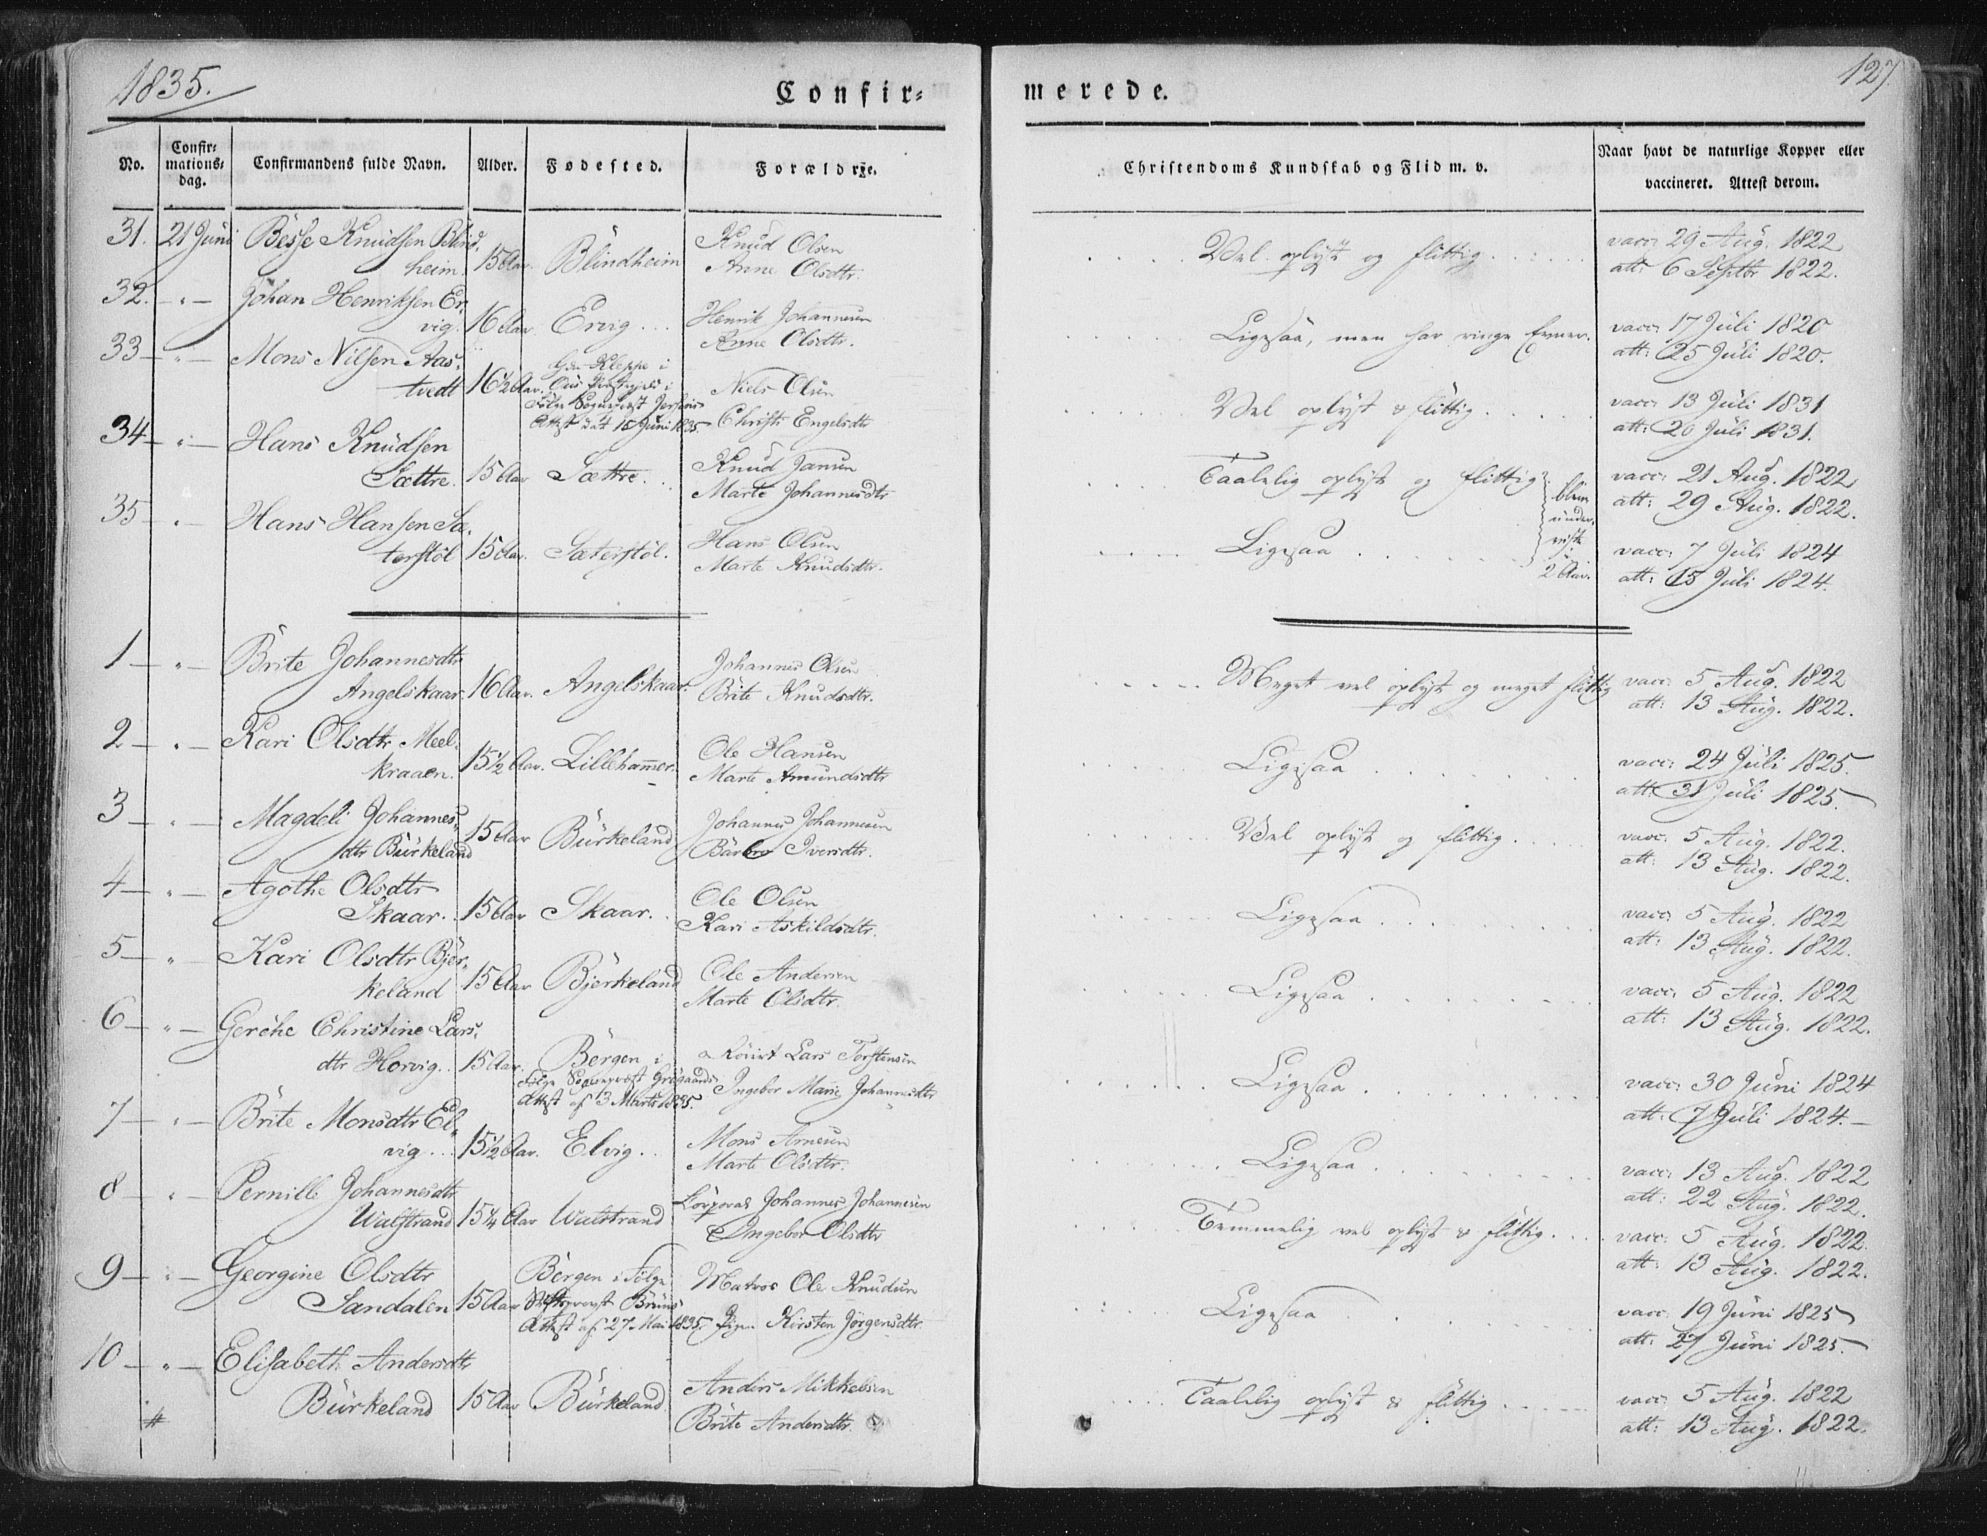 1835.
127.
Confir-
merede.
No.
Confir-
mations-
dag.
Confirmandens fulde Navn.
Alder.
Fødested.
Forældre.
Christendoms Kundskab og Flid m. v.
Naar havt de naturlige Kopper eller
vaccineret. Attest derom.
31. 21 Juni Besse Knudsen Blind-
heim. 15 Aar. Blindheim
Knud Olsen
Anne Olsdtr.
Vel oplyst og flittig
vacc: 29 Aug. 1822
att: 6 Septbr 1822.
32. — " — Johan Henriksen Er-
vig. 16 Aar Ervig
Henrik Johannesen
Anne Olsdtr.
Ligesaa, men har ringe
vacc: 17 Juli 1820
att: 25 Juli 1820.
33 — " — Mons Nilsen Aas-
tvedt 16½ Aar.
Kleppe i
Præstegjeld i
Følge Sognepræst
Attest dat 15 Juni 1835
Niels Olsen
Christi Engelsdtr
Vel oplyst & flittig
vacc: 13 Juli 1831
att: 20 Juli 1831.
34 — " — Hans Knudsen
Sættre. 15 Aar Sættre
Knud Jansen
Marte Johannesdtr
Taalelig oplyst og flittig
vacc: 21 Aug. 1822
att: 29 Aug. 1822.
35 — " — Hans Hansen Sæ-
terstøl 15 Aar. Sæterstøl.
Hans Olsen
Marte Knudsdtr.
Ligesaa
blev
under-
viste
i
2 Aar.
vacc: 7 Juli 1824
att: 15 Juli 1824.
1 — " — Brite Johannesdtr
Angelskaar 16 Aar. Angelskaar.
Johannes Olsen
Brite Knudsdtr.
Meget vel oplyst og meget flittig
vacc: 5 Aug. 1822
att: 13 Aug. 1822.
2 — " — Kari Olsdtr Meel-
kraaen. 15½ Aar. Lillehammer.
Ole Hansen
Marte Amundsdtr
Ligesaa
vacc: 24 Juli 1825.
att: 31 Juli 1825.
3 — " — Magdeli Johannes-
dtr Bürkeland 15 Aar Bürkeland
Johannes Johannesen
Barbro Iversdtr.
Vel oplyst og flittig
vacc: 5 Aug. 1822.
att: 13 Aug. 1822.
4 — " — Agothe Olsdtr
Skaar. 15 Aar Skaar.
Ole Olsen
Kari Askildsdtr.
Ligesaa
vacc: 5 Aug. 1822
att: 13 Aug. 1822.
5 — " — Kari Olsdtr Bjer-
keland 15 Aar Bjerkeland
Ole Andersen
Marte Olsdtr.
Ligesaa
vacc: 5 Aug. 1822
att: 13 Aug. 1822.
6 — " — Gerche Christine Lars-
dtr Horvig 15 Aar. Bergen i
Følge Sognepræst Grögaards
Attest af 13 Marts 1835.
Lars Torstensen
Ingebor Marie Johannesdtr
Ligesaa
vacc: 30 Juni 1824
att: 7 Juli 1824. —
7 — " — Brite Monsdtr El-
vig 15½ Aar. Elvig
Mons Arnesen
Marte Olsdtr.
Ligesaa
vacc: 13 Aug. 1822
att: 22 Aug. 1822.
8 — " — Pernille Johannesdtr
Walstrand 15¼ Aar Walstrand
Corporal Johannes Johannesen
Ingebor Olsdtr
Temmelig vel oplyst & flittig
vacc: 5 Aug. 1822.
att: 13 Aug. 1822.
9 — " — Georgine Olsdtr
Sandalen 15 Aar
Bergen i Følge
Stiftsprovst Bruns
Attest af 27 Mai 1835.
Matros Ole Knudsen
Pigen Kirsten Jörgensdtr.
Ligesaa
vacc: 19 Juni 1825
att: 27 Juni 1825.
10 — " — Elisabeth Andersdtr
Bürkeland 15 Aar Bürkeland
Anders Mikkelsen
Brite Andersdtr.
Taalelig oplyst & flittig
vacc: 5 Aug. 1822
att: 13 Aug. 1822.